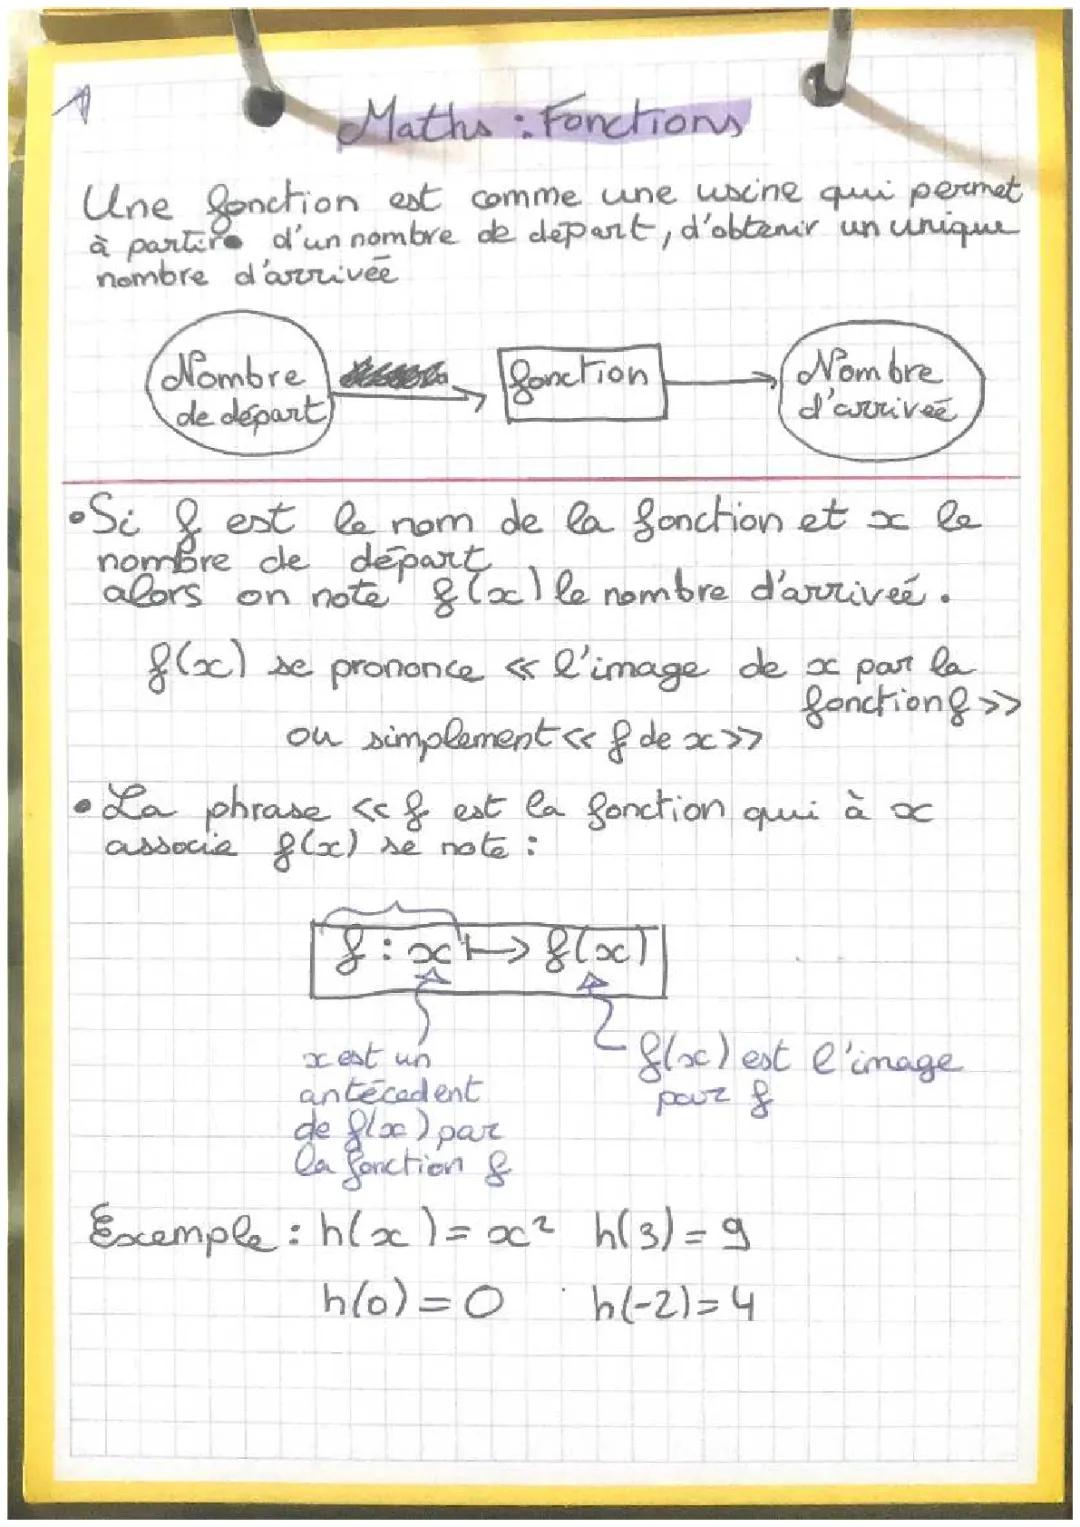 1
Maths : Fonctions
Une fonction est comme une uscine qui permet
à partir d'un nombre de départ, d'obtenir un unique
nombre d'arrivée
Nombre
de départ
fonction
Nombre
d'arriveé
• Si f est le nom de la fonction et x le
nombre de départ
alors on note f(x) le nombre d'arriveé.
f(x) se prononce << l'image de x par la
fonction f >>
ou simplement << f de x >>
• La phrase << f est la fonction qui à x
associe f(x) se note :
f : x ↦ f(x)
x est un
antécedent
de f(x) par
la fonction f
f(x) est l'image
par f
Exemple : h(x) = x² h(3) = 9
h(0) = 0 h(-2) = 4